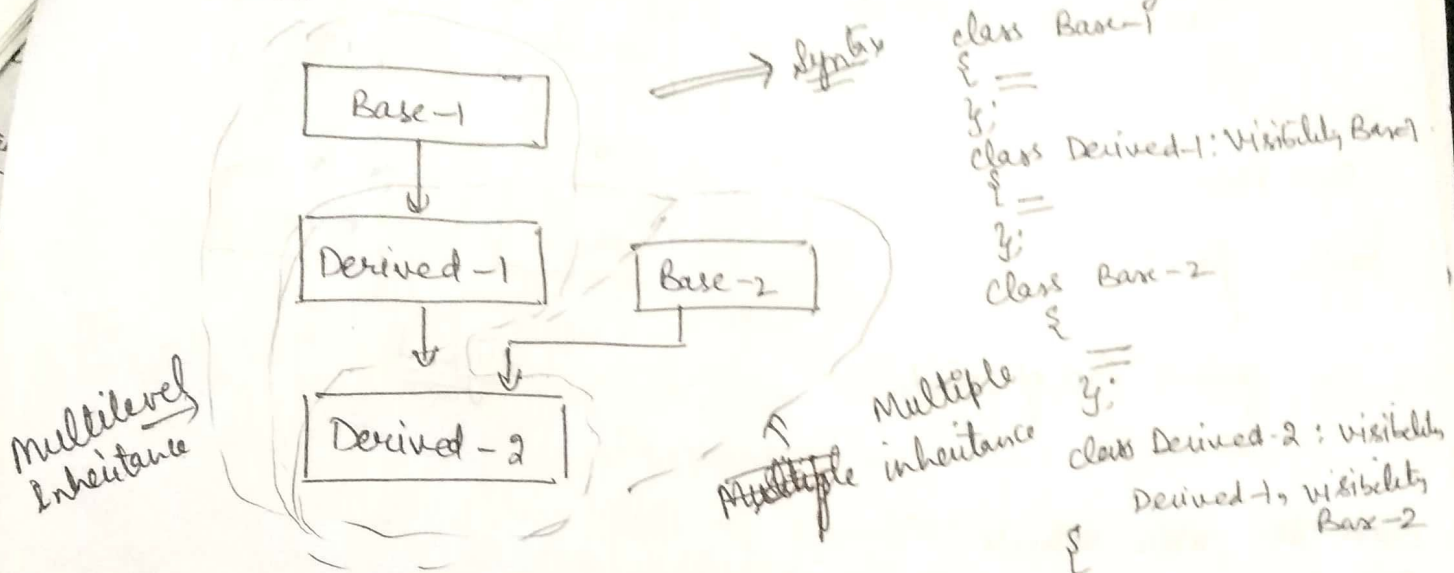 Base-1
Derived-1
Base-2
Derived-2
Multilevel
Inheritance
Multiple
inheritance
Syntax
class Base-1
{
};
class Derived-1: Visibility Base1
{
};
class Base-2
{
};
class Derived-2 : visibility
Derived-1, visibility
Base-2
{